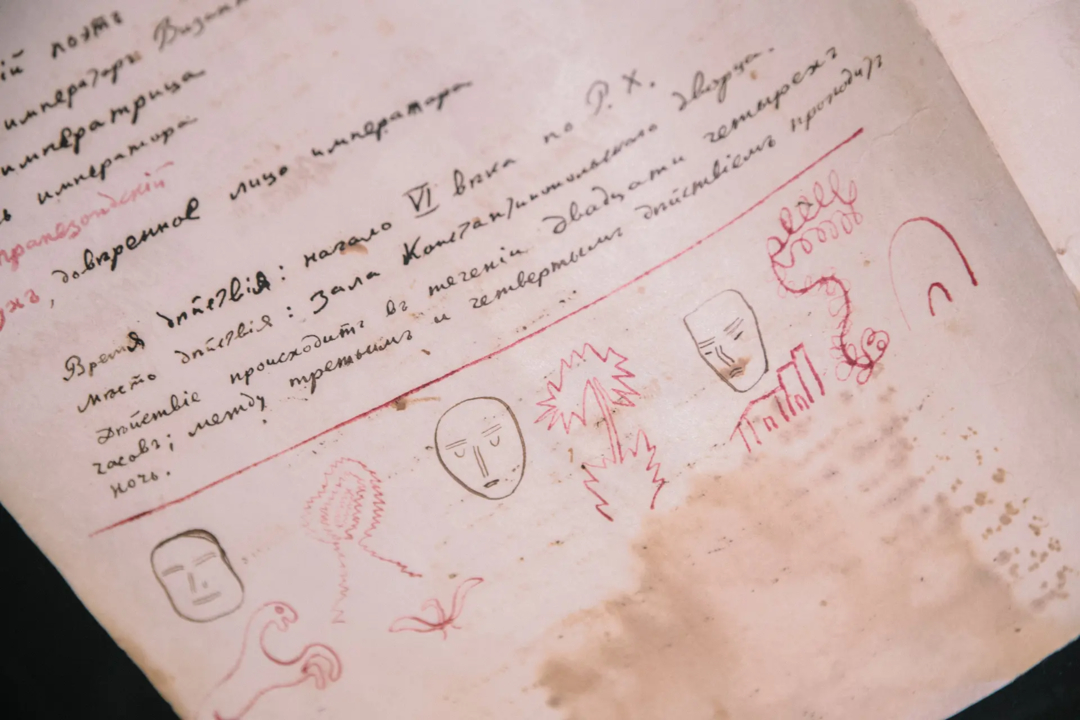 ій поэтъ
императоръ Визан
императрица
ь императора
трапезондскій
ухъ, довѣренное лицо императора
Время дѣйствія: начало VI вѣка по Р. Х.
Мѣсто дѣйствія: Зала Константинопольскаго дворца.
Дѣйствіе происходитъ въ теченіи двадцати четырехъ
часовъ; между третьимъ и четвертымъ дѣйствіемъ проходитъ
ночь.